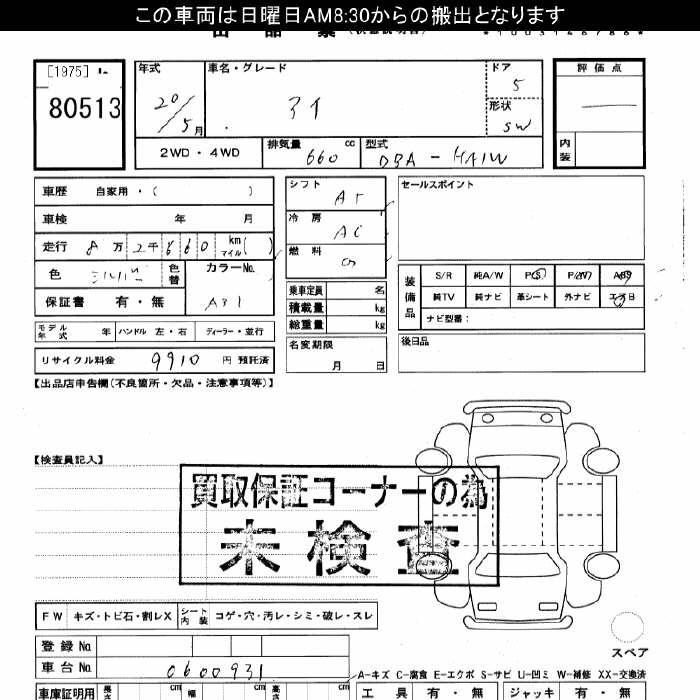 この車両は日曜日AM8:30からの搬出となります
出品票
[1975]
80513
年式 20/5月
車名・グレード アイ
ドア 5
形状 SW
評価点
内装
2WD・4WD
排気量 660 cc
型式 DBA-HA1W
車歴 自家用・( )
車検 年 月
走行 8万2千660 km マイル( )
色 シルバー 色替
カラーNo. A31
保証書 有・無
モデル年式 年 ハンドル 左・右 ディーラー・並行
リサイクル料金 9910 円 預託済
シフト AT
冷房 AC
燃料 G
乗車定員 名
積載量 kg
総重量 kg
名変期限 月 日
セールスポイント
装備品
S/R 純A/W P(S) P/W ABS
純TV 純ナビ 革シート 外ナビ エアB
ナビ型番:
後日品
【出品店申告欄(不良箇所・欠品・注意事項等)】
【検査員記入】
買取保証コーナーの為
未検査
FW キズ・トビ石・割レX シート内装 コゲ・穴・汚レ・シミ・破レ・スレ
登録No.
車台No. 0600931
スペア
A-キズ C-腐食 E-エクボ S-サビ U-凹ミ W-補修 XX-交換済
車庫証明用 長さ cm 幅 cm 高さ cm
工具 有・無 ジャッキ 有・無